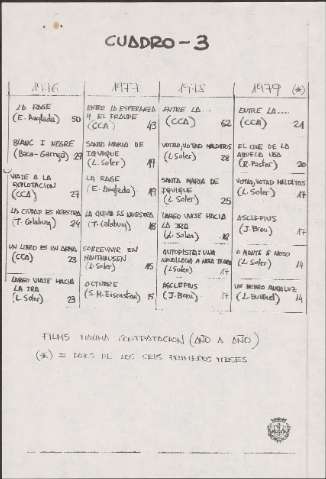 CUADRO-3
1976
LA RAGE
(E. Anglada) 50
BLANC I NEGRE
(Baca-Garriga) 27
VIAJE A LA
EXPLOTACION
(CCA) 27
LA CIUDAD ES NUESTRA
(T. Calabuig) 24
UN LIBRO ES UN ARMA
(CCA) 23
LARGO VIAJE HACIA
LA IRA
(L. Soler) 23
1977
ENTRE LA ESPERANZA
Y EL FRAUDE
(CCA) 43
SANTA MARIA DE
IQUIQUE
(L. Soler) 19
LA RAGE
(E. Anglada) 19
LA CIUDAD ES NUESTRA
(T. Calabuig) 18
SOBREVIVIR EN
MAUTHAUSEN
(L. Soler) 15
OCTUBRE
(S. M. Eisenstein) 15
1978
ENTRE LA....
(CCA) 62
VOTAD, VOTAD MALDITOS
(L. Soler) 28
SANTA MARIA DE
IQUIQUE
(L. Soler) 25
LARGO VIAJE HACIA
LA IRA
(L. Soler) 18
AUTOPISTA: UNA
A NOSA TERRA
(L. Soler) 17
ASCLEPIUS
(J. Breu) 17
1979 (*)
ENTRE LA....
(CCA) 21
EL CINE DE LA
ABUELA
(R. Pastor) 20
VOTAD, VOTAD MALDITOS
(L. Soler) 17
ASCLEPIUS
(J. Breu) 17
O MONTE É NOSO
(L. Soler) 14
UN PERRO ANDALUZ
(L. Buñuel) 14
FILMS MAXIMA CONTRATACION (AÑO A AÑO)
(*) = DATOS DE LOS SEIS PRIMEROS MESES